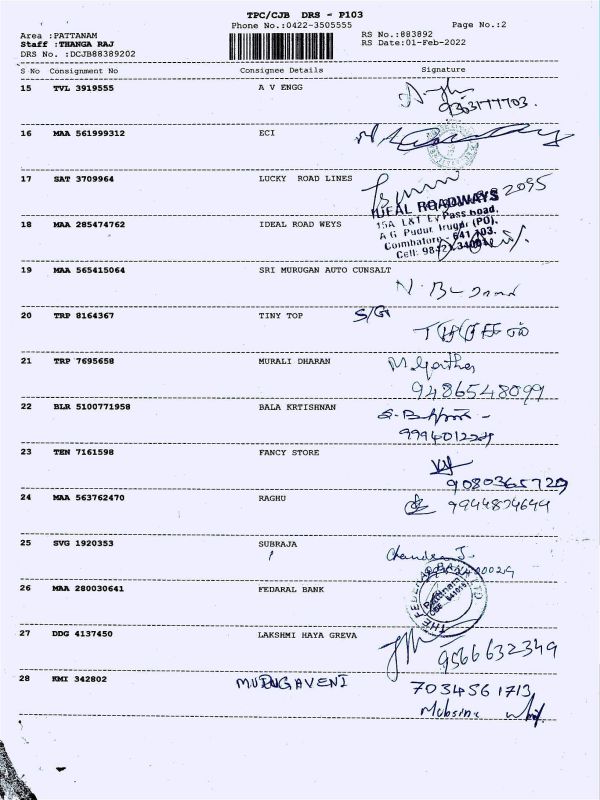 TPC/CJB DRS - P103
Phone No.:0422-3505555 Page No.:2
Area :PATTANAM RS No.:883892
Staff :THANGA RAJ RS Date:01-Feb-2022
DRS No. :DCJB88389202
S No Consignment No Consignee Details Signature
15 TVL 3919555 A V ENGG
9363177703.
16 MAA 561999312 ECI
17 SAT 3709964 LUCKY ROAD LINES
2095
IDEAL ROADWAYS
18 MAA 285474762 IDEAL ROAD WEYS
15A L&T By Pass Road,
A.G. Pudur, Irugur (PO),
Coimbatore - 641 103.
Cell:
19 MAA 565415064 SRI MURUGAN AUTO CUNSALT
20 TRP 8164367 TINY TOP S/G
21 TRP 7695658 MURALI DHARAN
9486548099
22 BLR 5100771958 BALA KRTISHNAN
23 TEN 7161598 FANCY STORE
9080365729
24 MAA 563762470 RAGHU
9944824644
25 SVG 1920353 SUBRAJA
26 MAA 280030641 FEDARAL BANK
THE FEDERAL BANK LTD
Pattanam
27 DDG 4137450 LAKSHMI HAYA GREVA
9566632349
28 KMI 342802 MURUGAVENI 7034561713
Mubsina